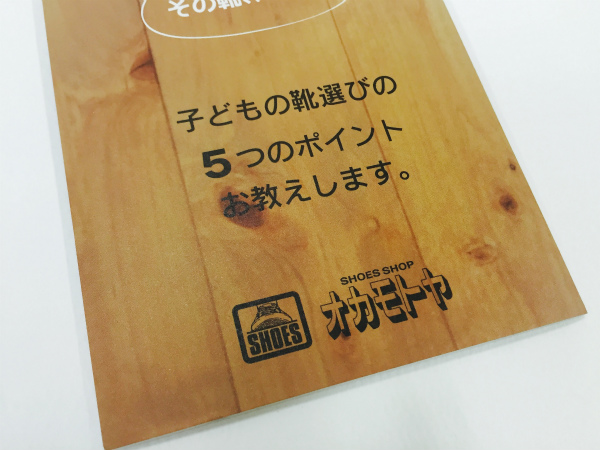 その靴
子どもの靴選びの
5つのポイント
お教えします。
SHOES
SHOES SHOP
オカモトヤ